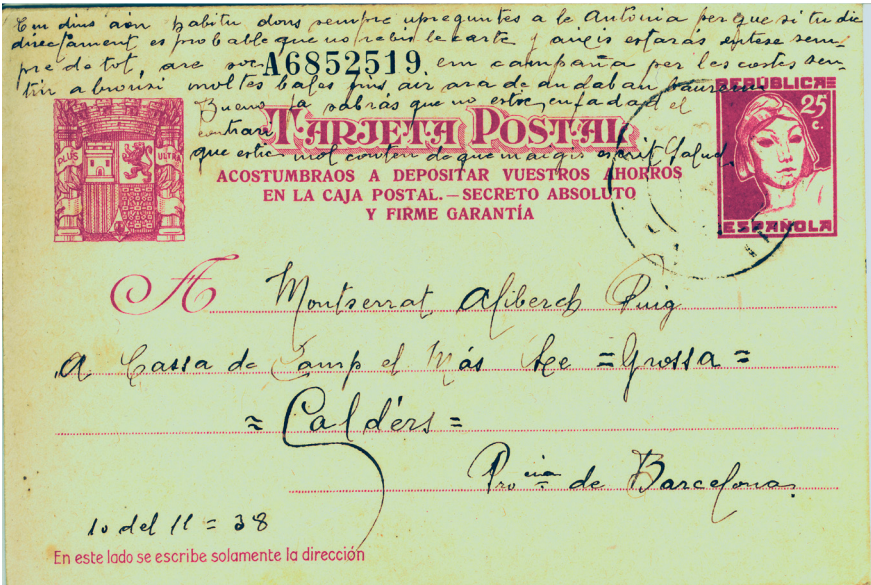 Em dius aon habitu dons sempre upreguntes a le Antonia perque si tu dic
directament es probable que no rebis le carte y aixis estarás entese sem-
pre de tot, are soc A6852519 em campaña per les costes sen-
tir a bronsi moltes balas fins
Bueno ja sabrás que no estic enfadad el
contrari
que estic mol conten de que maigis escrit Salud.
REPÚBLICA
25 c.
ESPAÑOLA
PLUS ULTRA
TARJETA POSTAL
ACOSTUMBRAOS A DEPOSITAR VUESTROS AHORROS
EN LA CAJA POSTAL.—SECRETO ABSOLUTO
Y FIRME GARANTÍA
A Montserrat Aliberch Puig
A Cassa de Camp el Más = Grossa =
= Caldérs =
Pro cia de Barcelona
10 del 11 = 38
En este lado se escribe solamente la dirección